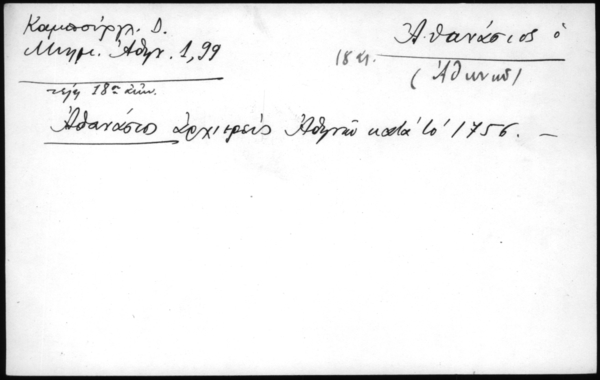 Καμπούρογλ. Δ.
Μνημ. Ἀθην. 1, 99
τέλη 18ου αἰῶν.
Ἀθανάσιος ὁ
18 αι.
(Ἀθηνῶν)
Ἀθανάσιος ἀρχιερεὺς Ἀθηνῶν κατὰ τὸ 1756. –